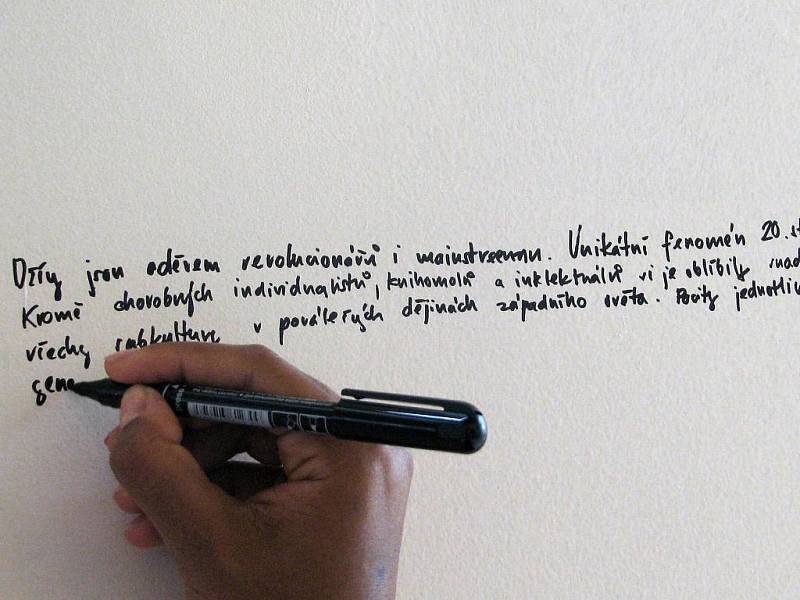 Džíny jsou oděvem revolucionářů i mainstreamu. Unikátní fenomén 20. st
Kromě chorobných individualistů, knihomolů a intelektuálů si je oblíbily snad
všechy subkultury v poválečných dějinách západního světa. Pocity jednotliv
gene